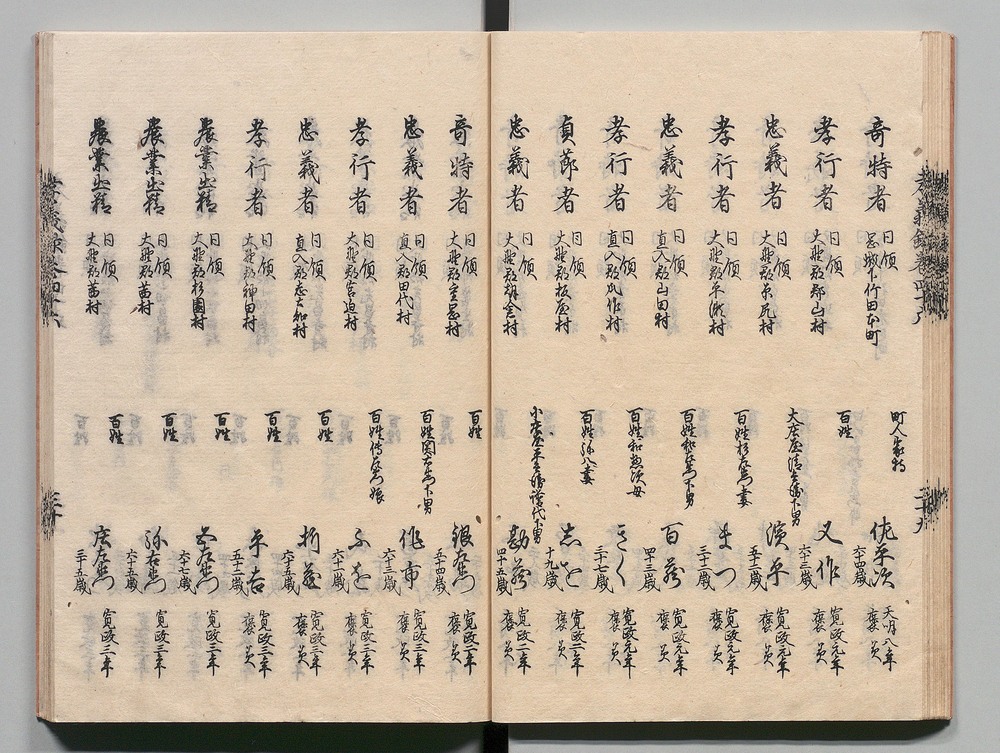 奇特者
同領
岡城下竹田本町
町人家持
佐平次
六十四歳
天明八年
褒美
孝行者
同領
大野郡郡山村
百姓
又作
六十三歳
寛政元年
褒美
忠義者
同領
大野郡原尻村
大庄屋清兵衛下男
濱平
五十二歳
寛政元年
褒美
孝行者
同領
大野郡平瀬村
百姓杉右衛門妻
まつ
三十二歳
寛政元年
褒美
忠義者
同領
直入郡山田村
百姓 下男
百蔵
四十三歳
寛政元年
褒美
孝行者
同領
直入郡瓜作村
百姓和惣次母
さく
三十七歳
寛政元年
褒美
貞節者
同領
大野郡板屋村
百姓弥八妻
志を
十九歳
寛政二年
褒美
忠義者
同領
大野郡朝倉村
小庄屋 譜代下男
勘蔵
四十五歳
寛政二年
褒美
奇特者
同領
大野郡 村
百姓
銀右衛門
五十四歳
寛政二年
褒美
忠義者
同領
直入郡田代村
百姓園右衛門下男
作市
六十三歳
寛政二年
褒美
孝行者
同領
大野郡宮迫村
百姓傳右衛門娘
ふを
六十三歳
寛政三年
褒美
忠義者
同領
直入郡志土知村
百姓
折蔵
六十五歳
寛政三年
褒美
孝行者
同領
大野郡神田村
百姓
平吉
五十二歳
寛政三年
褒美
農業出精
同領
大野郡杉園村
百姓
五右衛門
六十七歳
寛政三年
農業出精
同領
大野郡苗村
百姓
弥右衛門
六十五歳
寛政三年
農業出精
同領
大野郡苗村
百姓
庄右衛門
三十五歳
寛政三年
孝義録巻四十六